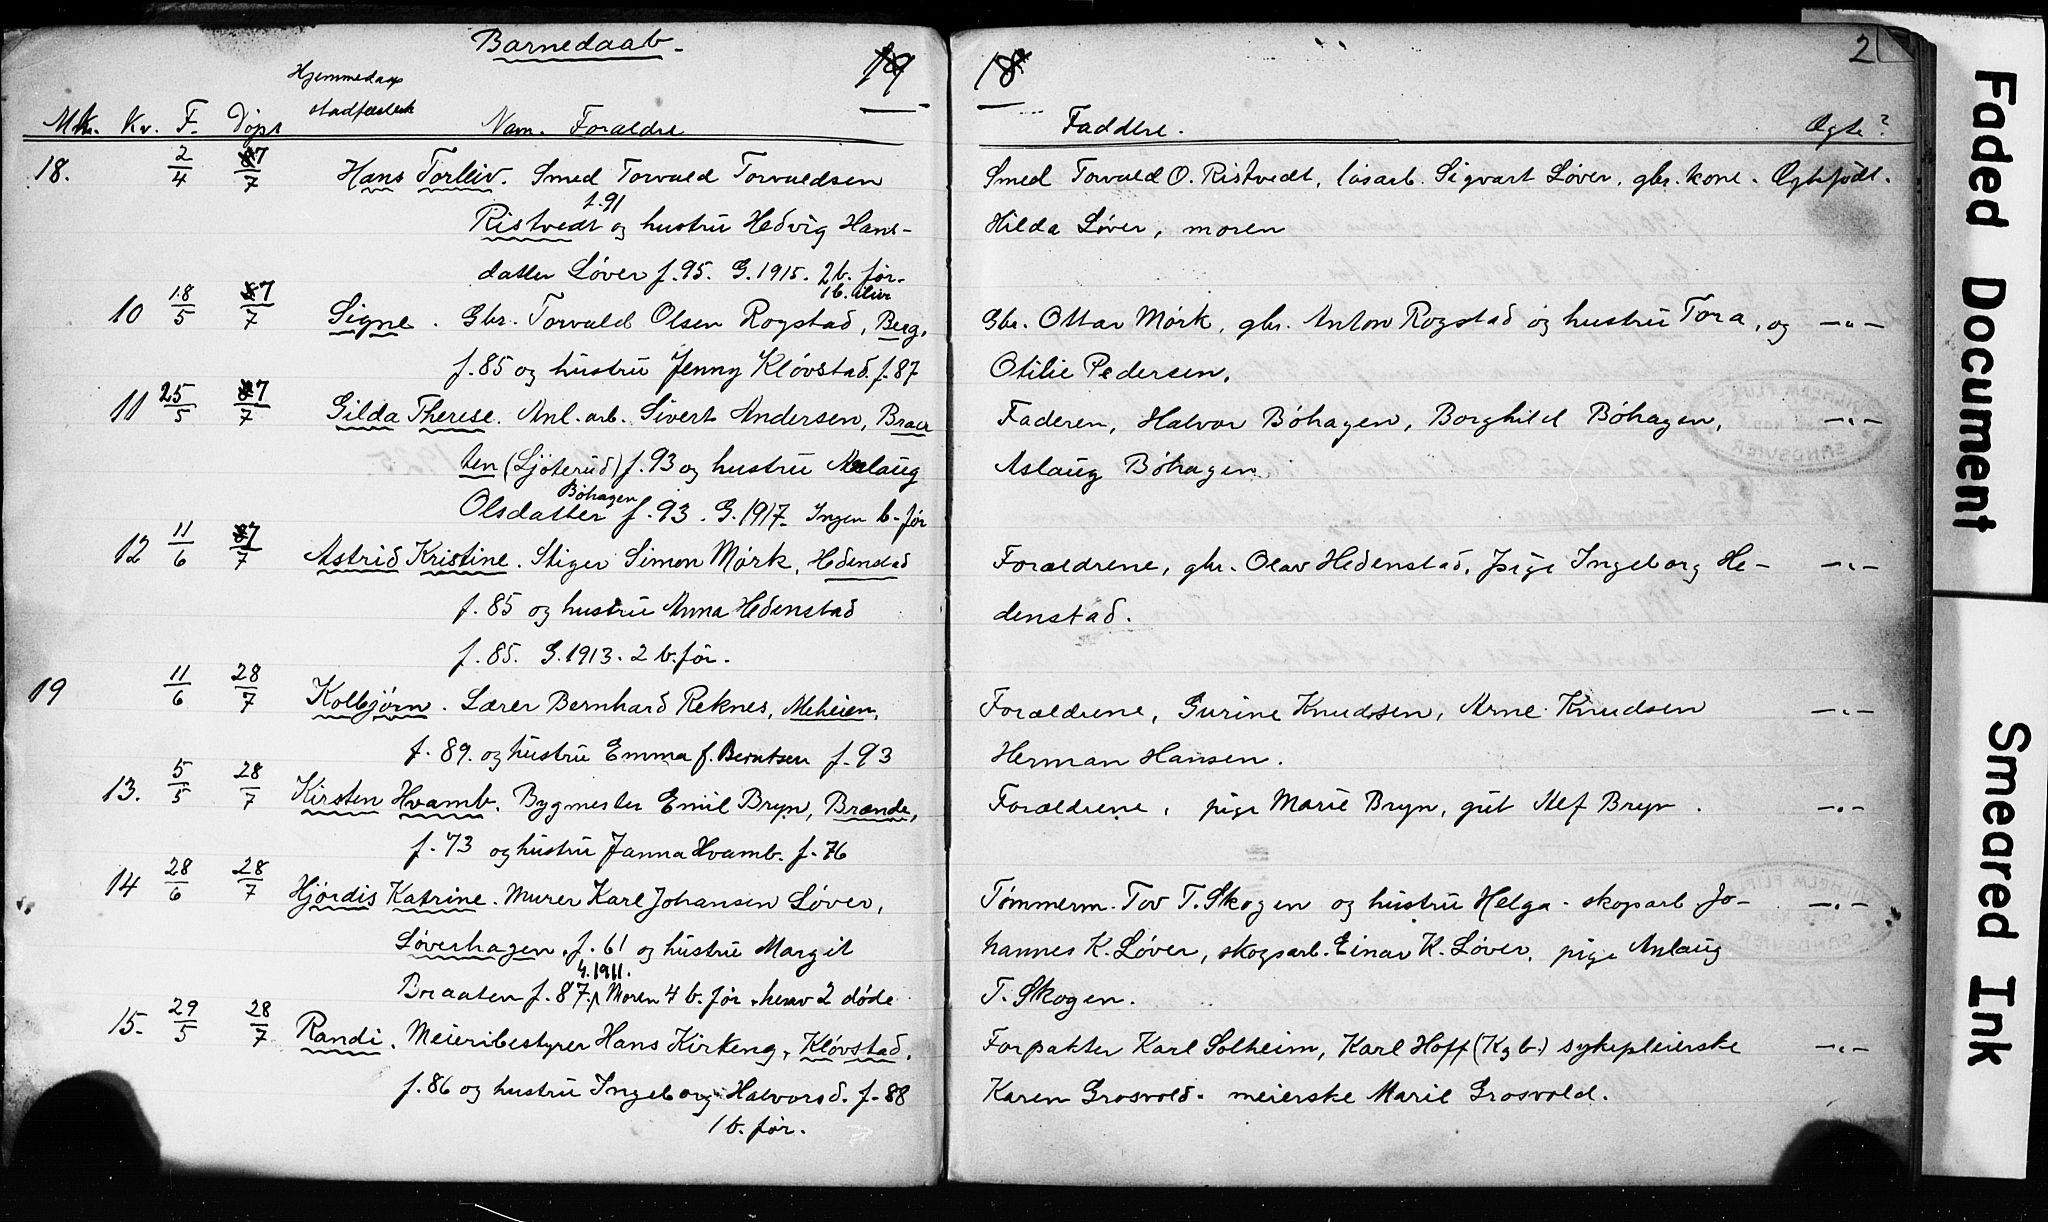 Barnedaab.
19
Hjemmedaap
stadfæstet
Mk. Kv. F. Döpt Navn. Forældre
18. 2/4 7/7 Hans Torleiv. Smed Torvald Torvaldsen
f. 91
Ristvedt og hustru Hedvig Hans-
datter Løver f. 95. G. 1915. 2 b. før.
1 b. ilive
10 18/5 7/7 Signe. Gbr. Torvald Olsen Rogstad, Berg,
f. 85 og hustru Jenny Kløvstad. f. 87
11 25/5 7/7 Gilda Therese. Anl. arb. Sivert Andersen, Braa
ten (Ljøterud) f. 93 og hustru Aslaug
Bøhagen
Olsdatter f. 93. G. 1917. Ingen b. før
12 11/6 7/7 Astrid Kristine. Stiger Simon Mørk, Hedenstad
f. 85 og hustru Anna Hedenstad
f. 85. G. 1913. 2 b. før.
19 11/6 28/7 Kolbjørn. Lærer Bernhard Reknes, Meheien,
f. 89. og hustru Emma f. Berntsen f. 93
13. 5/5 28/7 Kirsten Hvamb. Bygmester Emil Bryn, Brænde,
f. 73 og hustru Janna Hvamb. f. 76
14 28/6 28/7 Hjørdis Katrine. Murer Karl Johansen Løver,
Løverhagen, f. 61 og hustru Margit
4. 1911.
Braaten f. 87. Moren 4 b. før, herav 2 døde
15. 29/5 28/7 Randi. Meieribestyrer Hans Kirkeng, Kløvstad,
f. 86 og hustru Ingeborg Halvorsd. f. 88
1 b. før.
18 2
Faddere. Ægte?
Smed Torvald O. Ristvedt, løsarb. Sigvart Løver, gbr. kone. Ægtefødt.
Hilda Løver, moren
Gbr. Ottar Mørk, gbr. Anton Rogstad og hustru Tora, og —"—
Otilie Pedersen.
Faderen, Halvor Bøhagen, Borghild Bøhagen, —"—
Aslaug Bøhagen
Forældrene, gbr. Olav Hedenstad, pige Ingeborg He- —"—
denstad.
Forældrene, Gurine Knudsen, Arne Knudsen —"—
Herman Hansen.
Forældrene, pige Marie Bryn, gut Alf Bryn. —"—
Tømmerm. Tov T. Skogen og hustru Helga. skogsarb. Jo- —"—
hannes K. Løver, skogsarb. Einar K. Løver, pige Anlaug
T. Skogen.
Forpakter Karl Solheim, Karl Hoff (Kgb.) sykepleierske —"—
Karen Grosvold. meierske Marie Grosvold.
Faded Document
Smeared Ink